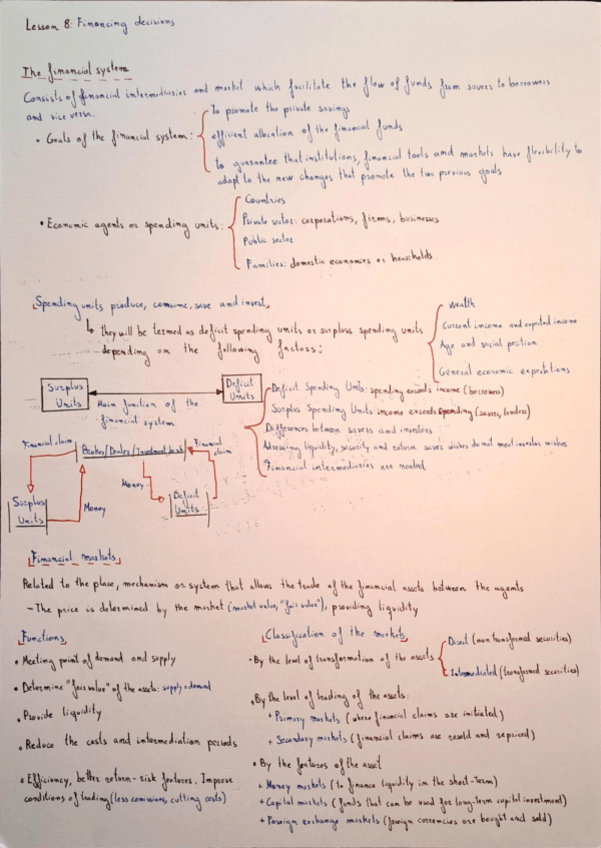 Lesson 8: Financing decisions
The financial system
Consists of financial intermediaries and market which facilitate the flow of funds from savers to borrowers
and vice versa.
• Goals of the financial system:
To promote the private savings
efficient allocation of the financial funds
to guarantee that institutions, financial tools and markets have flexibility to
adapt to the new changes that promote the two previous goals
• Economic agents or spending units:
Countries
Private sector: corporations, firms, businesses
Public sector
Families: domestic economies or households
Spending units produce, consume, save and invest,
they will be termed as deficit spending units or surplus spending units
depending on the following factors:
Wealth
Current income and expected income
Age and social position
General economic expectations
Surplus
Units
Main function of the
financial system
Deficit
Units
Deficit Spending Units: spending exceeds income (borrowers)
Surplus Spending Units income exceeds spending (savers, lenders)
Differences between savers and investors
Adressing liquidity, security and return savers wishes do not meet investor wishes
Financial intermediaries are needed
Financial claim
Broker/Dealer/Investment bank
Financial
claim
Money
Surplus
Units
Money
Deficit
Units
Financial markets
Related to the place, mechanism or system that allows the trade of the financial assets between the agents
- The price is determined by the market (market value, "fair value"), providing liquidity
Functions
• Meeting point of demand and supply
• Determine "fair value" of the assets: supply = demand
• Provide liquidity
• Reduce the costs and intermediation periods
• Efficiency, better return-risk features. Improve
conditions of trading (less comissions, cutting costs)
Classification of the markets
• By the level of transformation of the assets
Direct (non transformed securities)
Intermediated (transformed securities)
• By the level of trading of the assets:
+ Primary markets (where financial claims are initiated)
+ Secondary markets (financial claims are resold and repriced)
• By the features of the asset
+ Money markets (to finance liquidity in the short-Term)
+ Capital markets (funds that can be used for long-term capital investment)
+ Foreign exchange markets (foreign currencies are bought and sold)